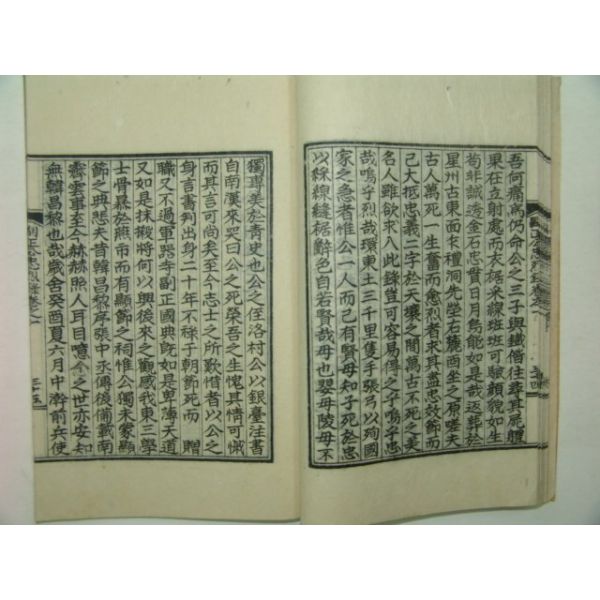 吾何痛焉仍命公之三子與鐵偕往尋其屍體
果在立射處而衣裾米線班班可驗顔貌如生
苟非誠透金石忠貫日月烏能如是哉返葬於
星州古東面求禮洞先塋石麓酉坐之原嗟夫
古人萬死一生奮而愈烈者求其盡忠效節而
己大抵忠義二字於天壤之間萬古不死之美
名人雖欲求入此錄豈可容易得之乎嗚乎忠
哉嗚乎烈哉環東土三千里隻手張弓以殉國
家之急者惟公一人而己有賢母知子死於忠
以綵線縫裾辭色自若賢哉母也嬰母陵母不
獨專美於靑史也公之侄洛村公以銀臺注書
自南漢來哭曰公之死榮吾之生愧其情可慽
而其言可尙矣至今志士之所歎惜者以公之
身言書判出身二十年不梯于朝節死而 贈
職又不過軍器寺副正國典旣如是卑薄天道
又如是抹摋將何以興後來之觀感我東三學
士骨暴於燕市而有顯節之祠惟公獨未蒙顯
節之典悲夫昔韓昌黎序張中丞傳後備載南
霽雲事至今赫赫照人耳目噫今之世亦安知
無韓昌黎也哉歲舍癸酉夏六月中澣前兵使
副正公忠烈錄卷之一
三十四
三十五